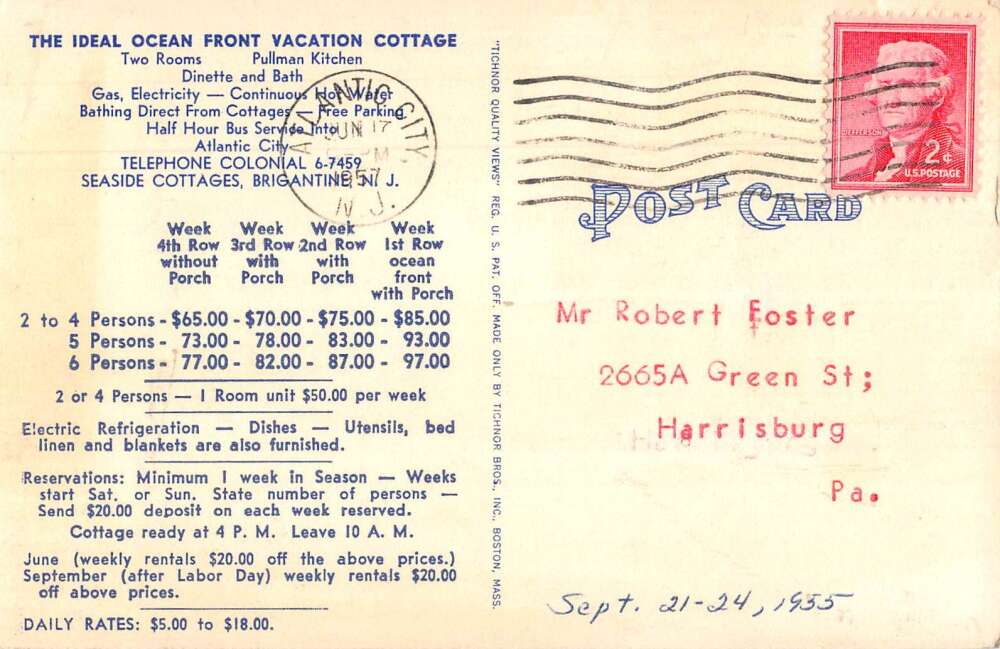 THE IDEAL OCEAN FRONT VACATION COTTAGE
Two Rooms Pullman Kitchen
Dinette and Bath
Gas, Electricity — Continuous Hot Water
Bathing Direct From Cottages Free Parking
Half Hour Bus Service Into
Atlantic City
TELEPHONE COLONIAL 6-7459
SEASIDE COTTAGES, BRIGANTINE, N. J.
ATLANTIC CITY,
JUN 17
PM
1957
N. J.
Week Week Week Week
4th Row 3rd Row 2nd Row 1st Row
without with with ocean
Porch Porch Porch front
with Porch
2 to 4 Persons - $65.00 - $70.00 - $75.00 - $85.00
5 Persons - 73.00 - 78.00 - 83.00 - 93.00
6 Persons - 77.00 - 82.00 - 87.00 - 97.00
2 or 4 Persons — 1 Room unit $50.00 per week
Electric Refrigeration — Dishes — Utensils, bed
linen and blankets are also furnished.
Reservations: Minimum 1 week in Season — Weeks
start Sat. or Sun. State number of persons —
Send $20.00 deposit on each week reserved.
Cottage ready at 4 P. M. Leave 10 A. M.
June (weekly rentals $20.00 off the above prices.)
September (after Labor Day) weekly rentals $20.00
off above prices.
DAILY RATES: $5.00 to $18.00.
"TICHNOR QUALITY VIEWS" REG. U. S. PAT. OFF. MADE ONLY BY TICHNOR BROS., INC., BOSTON, MASS.
JEFFERSON
2¢
U.S. POSTAGE
POST CARD
Mr Robert Foster
2665A Green St;
Harrisburg
Pa.
Sept. 21-24, 1955